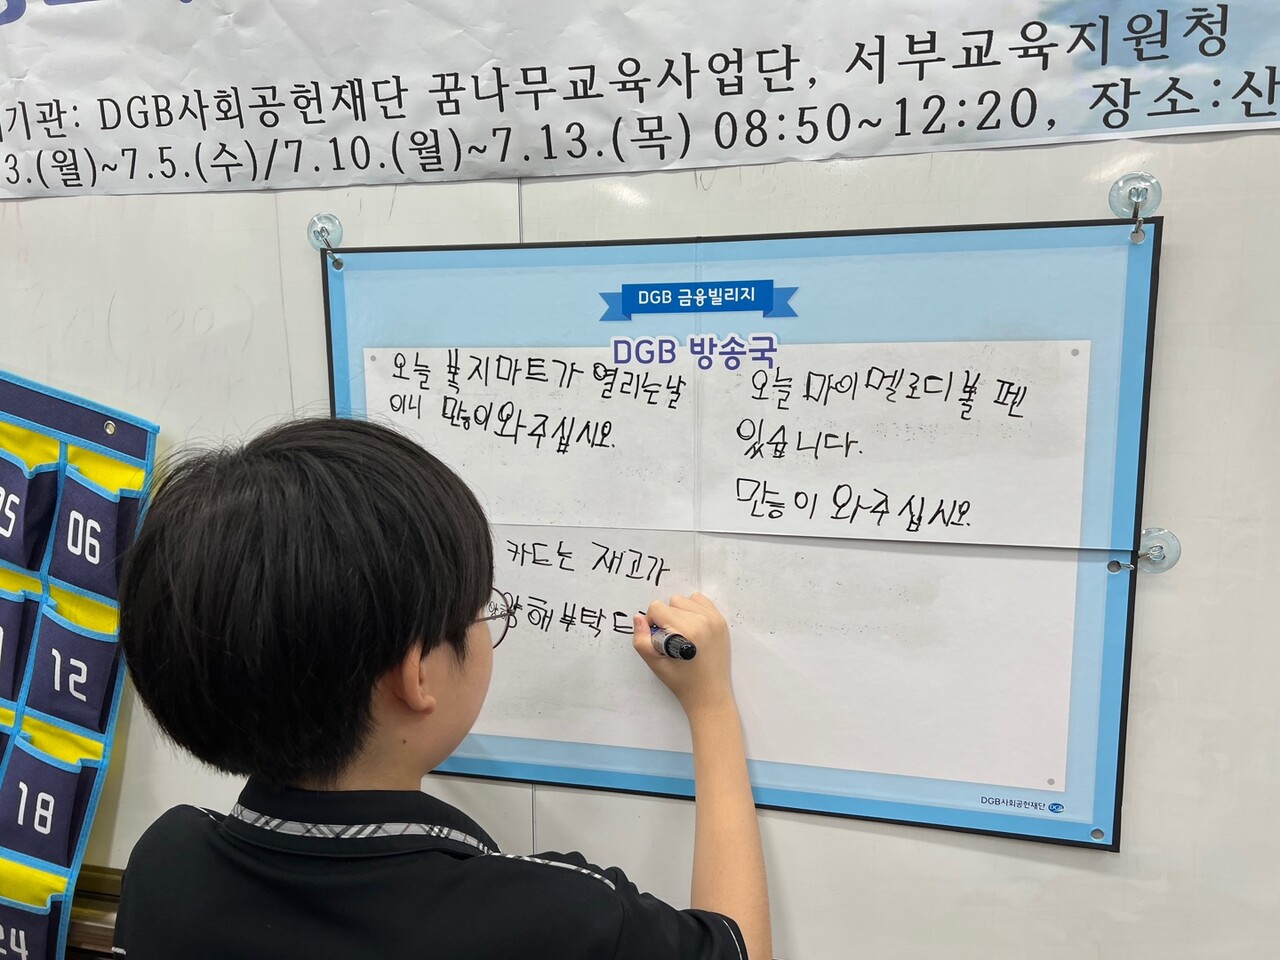 기관: DGB사회공헌재단 꿈나무교육사업단, 서부교육지원청
3.(월)~7.5.(수)/7.10.(월)~7.13.(목) 08:50~12:20, 장소:산
DGB 금융빌리지
DGB 방송국
오늘 복지마트가 열리는날
이니 많이와주십시오.
오늘 마이멜로디볼펜
있습니다.
많이 와주십시오.
카드는 재고가
양해부탁드
DGB사회공헌재단 DGB
05
06
12
18
24